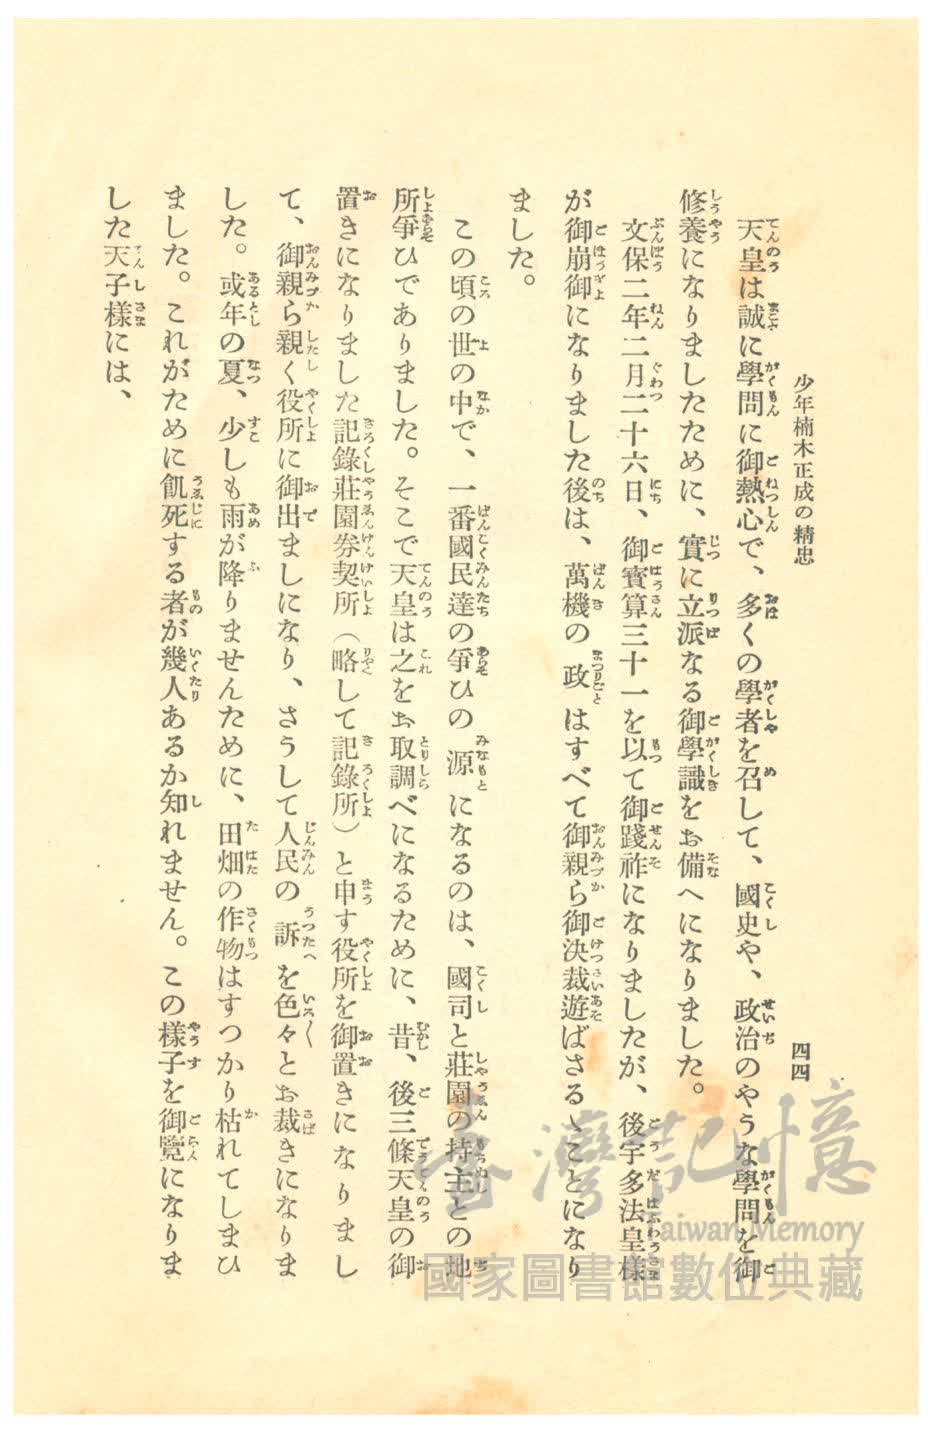 少年楠木正成の精忠
四四
天皇は誠に學問に御熱心で、多くの學者を召して、國史や、政治のやうな學問を御
修養になりましたために、實に立派なる御學識をお備へになりました。
文保二年二月二十六日、御寳算三十一を以て御踐祚になりましたが、後宇多法皇樣
が御崩御になりました後は、萬機の政はすべて御親ら御決裁遊ばさるゝことになり
ました。
この頃の世の中で、一番國民達の爭ひの源になるのは、國司と莊園の持主との地
所爭ひでありました。そこで天皇は之をお取調べになるために、昔、後三條天皇の御
置きになりました記錄莊園券契所（略して記錄所）と申す役所を御置きになりまし
て、御親ら親く役所に御出ましになり、さうして人民の訴を色々とお裁きになりま
した。或年の夏、少しも雨が降りませんために、田畑の作物はすつかり枯れてしまひ
ました。これがために飢死する者が幾人あるか知れません。この樣子を御覽になりま
した天子樣には、
臺灣記憶
Taiwan Memory
國家圖書館數位典藏